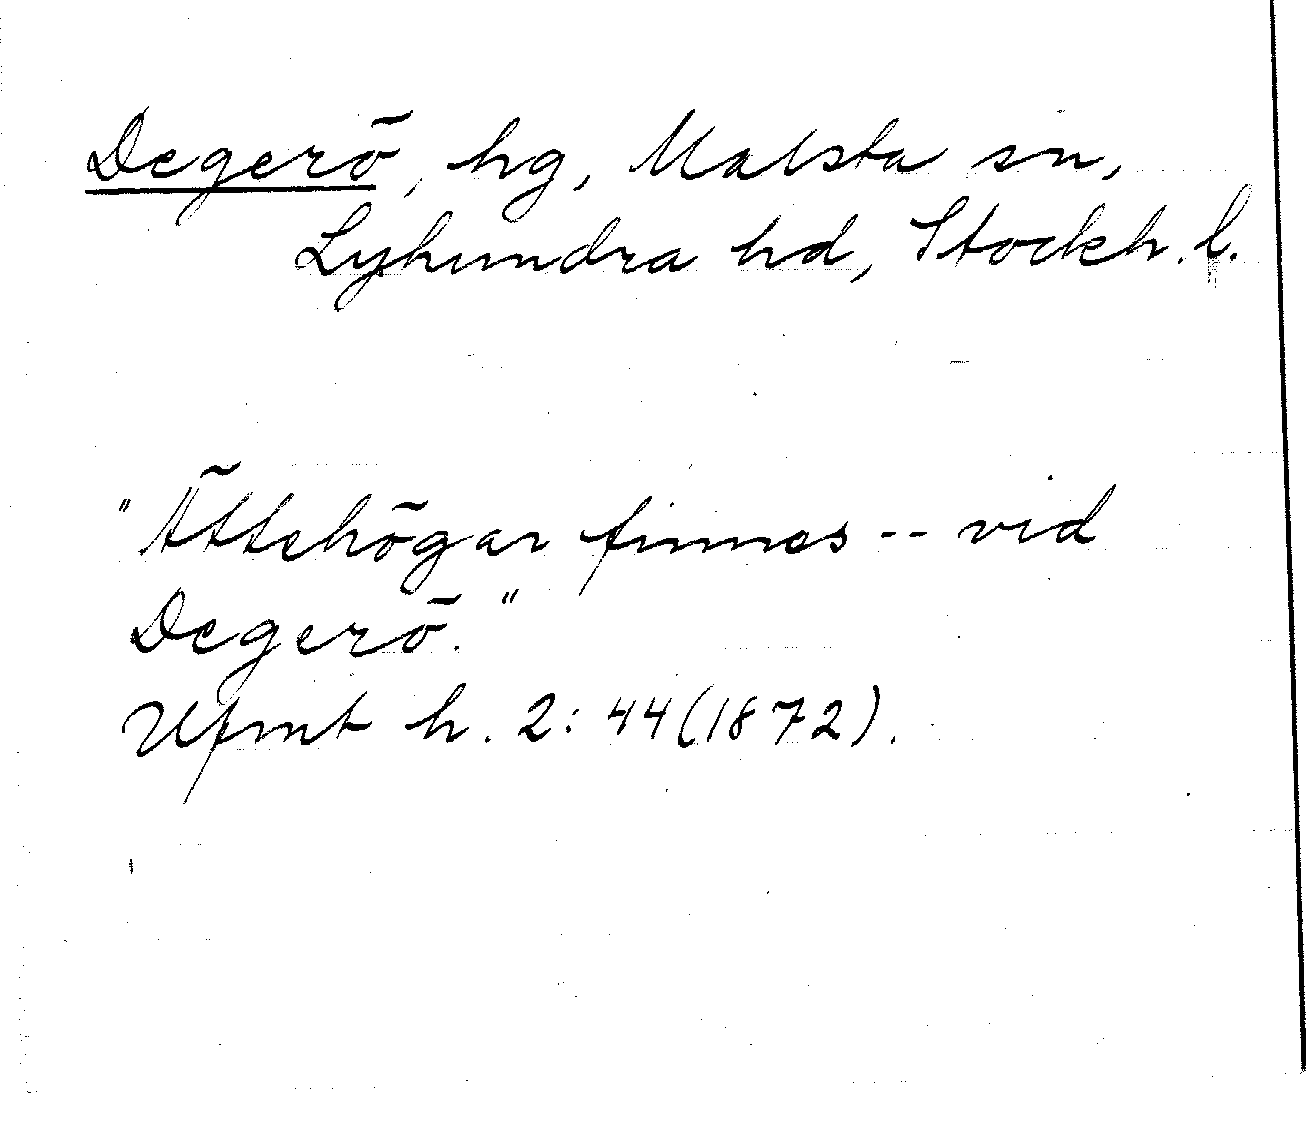 Degerö, hg, Malsta sn,
Lyhundra hd, Stockh. l.
"Ättehögar finnes -- vid
Degerö."
Ufmt h. 2: 44 (1872).